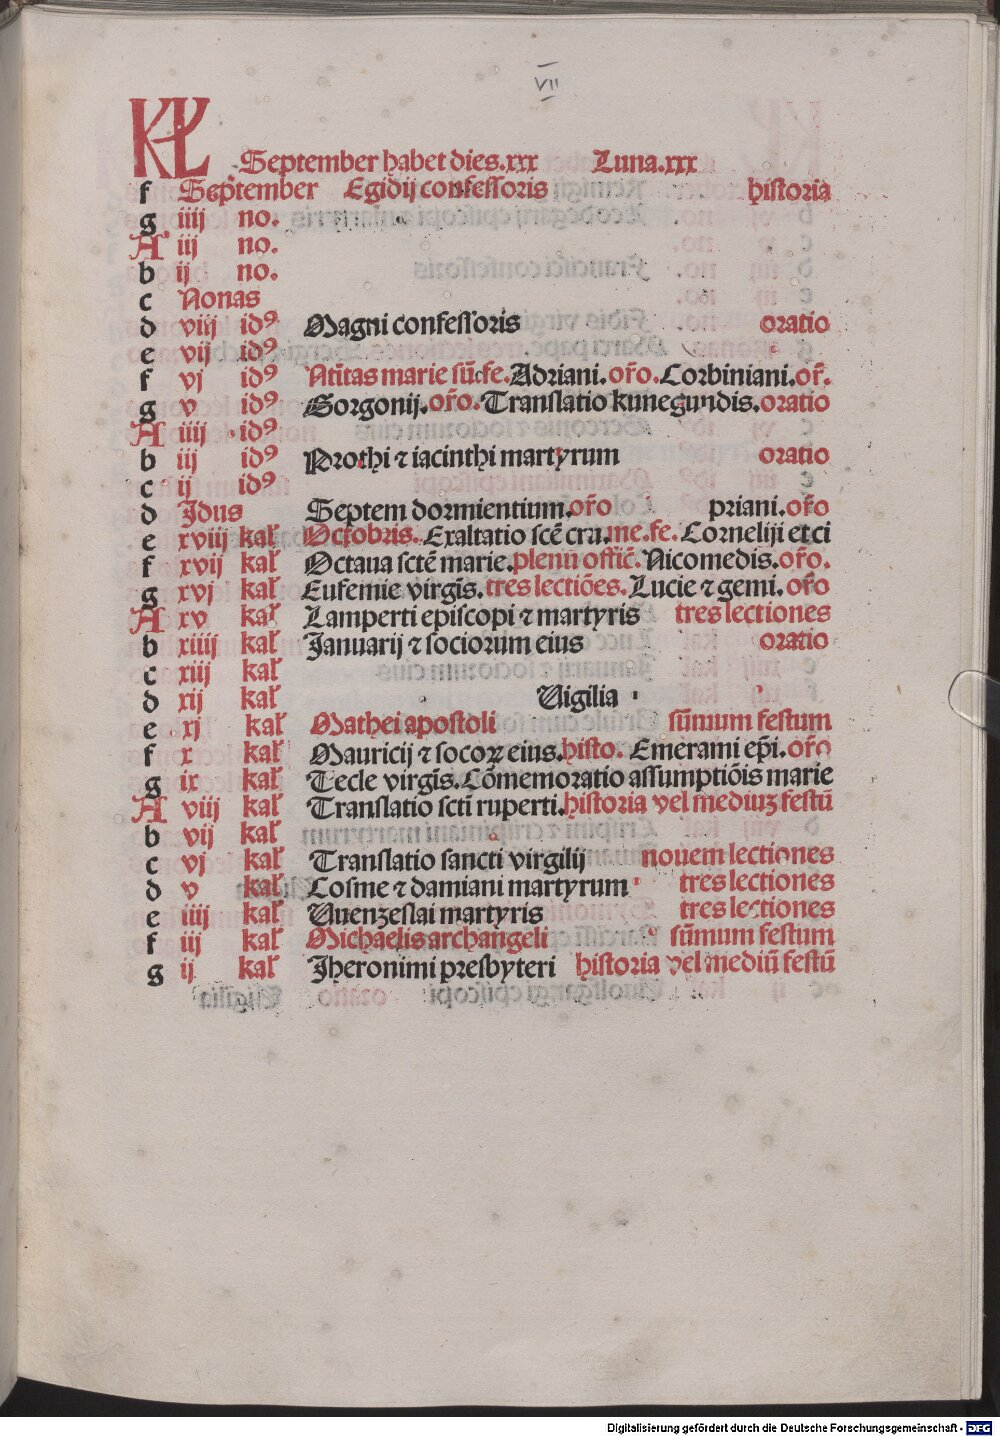 VII
KL September habet dies.xxx Luna.xxx
f September Egidij confessoris historia
g iiij no.
A iij no.
b ij no.
c Nonas
d viij idꝰ Magni confessoris oratio
e vij idꝰ
f vj idꝰ Nt̄itas marie sūfe. Adriani. or̄o. Corbiniani. or̄.
g v idꝰ Gorgonij. or̄o. Translatio kunegundis. oratio
A iiij idꝰ
b iij idꝰ Prothi ⁊ iacinthi martyrum oratio
c ij idꝰ
d Idus Septem dormientium. or̄o priani. or̄o
e xviij kal' Octobris. Exaltatio scē cru. me. fe. Cornelij et ci
f xvij kal' Octaua sctē marie. plenū offic̄. Nicomedis. or̄o.
g xvj kal' Eufemie virgīs. tres lectiōes. Lucie ⁊ gemi. or̄o
A xv kal' Lamperti episcopi ⁊ martyris tres lectiones
b xiiij kal' Januarij ⁊ sociorum eius oratio
c xiij kal'
d xij kal' Vigilia
e xj kal' Mathei apostoli sūmum festum
f x kal' Mauricij ⁊ socoꝝ eius. histo. Emerami ep̄i. or̄o
g ix kal' Tecle virgīs. Cōmemoratio assumptiōis marie
A viij kal' Translatio sctī ruperti. historia vel mediuȝ festū
b vij kal'
c vj kal' Translatio sancti virgilij nouem lectiones
d v kal' Cosme ⁊ damiani martyrum tres lectiones
e iiij kal' Wenzeslai martyris tres lectiones
f iij kal' Michaelis archangeli sūmum festum
g ij kal' Jheronimi presbyteri historia vel mediū festū
Digitalisierung gefördert durch die Deutsche Forschungsgemeinschaft - DFG